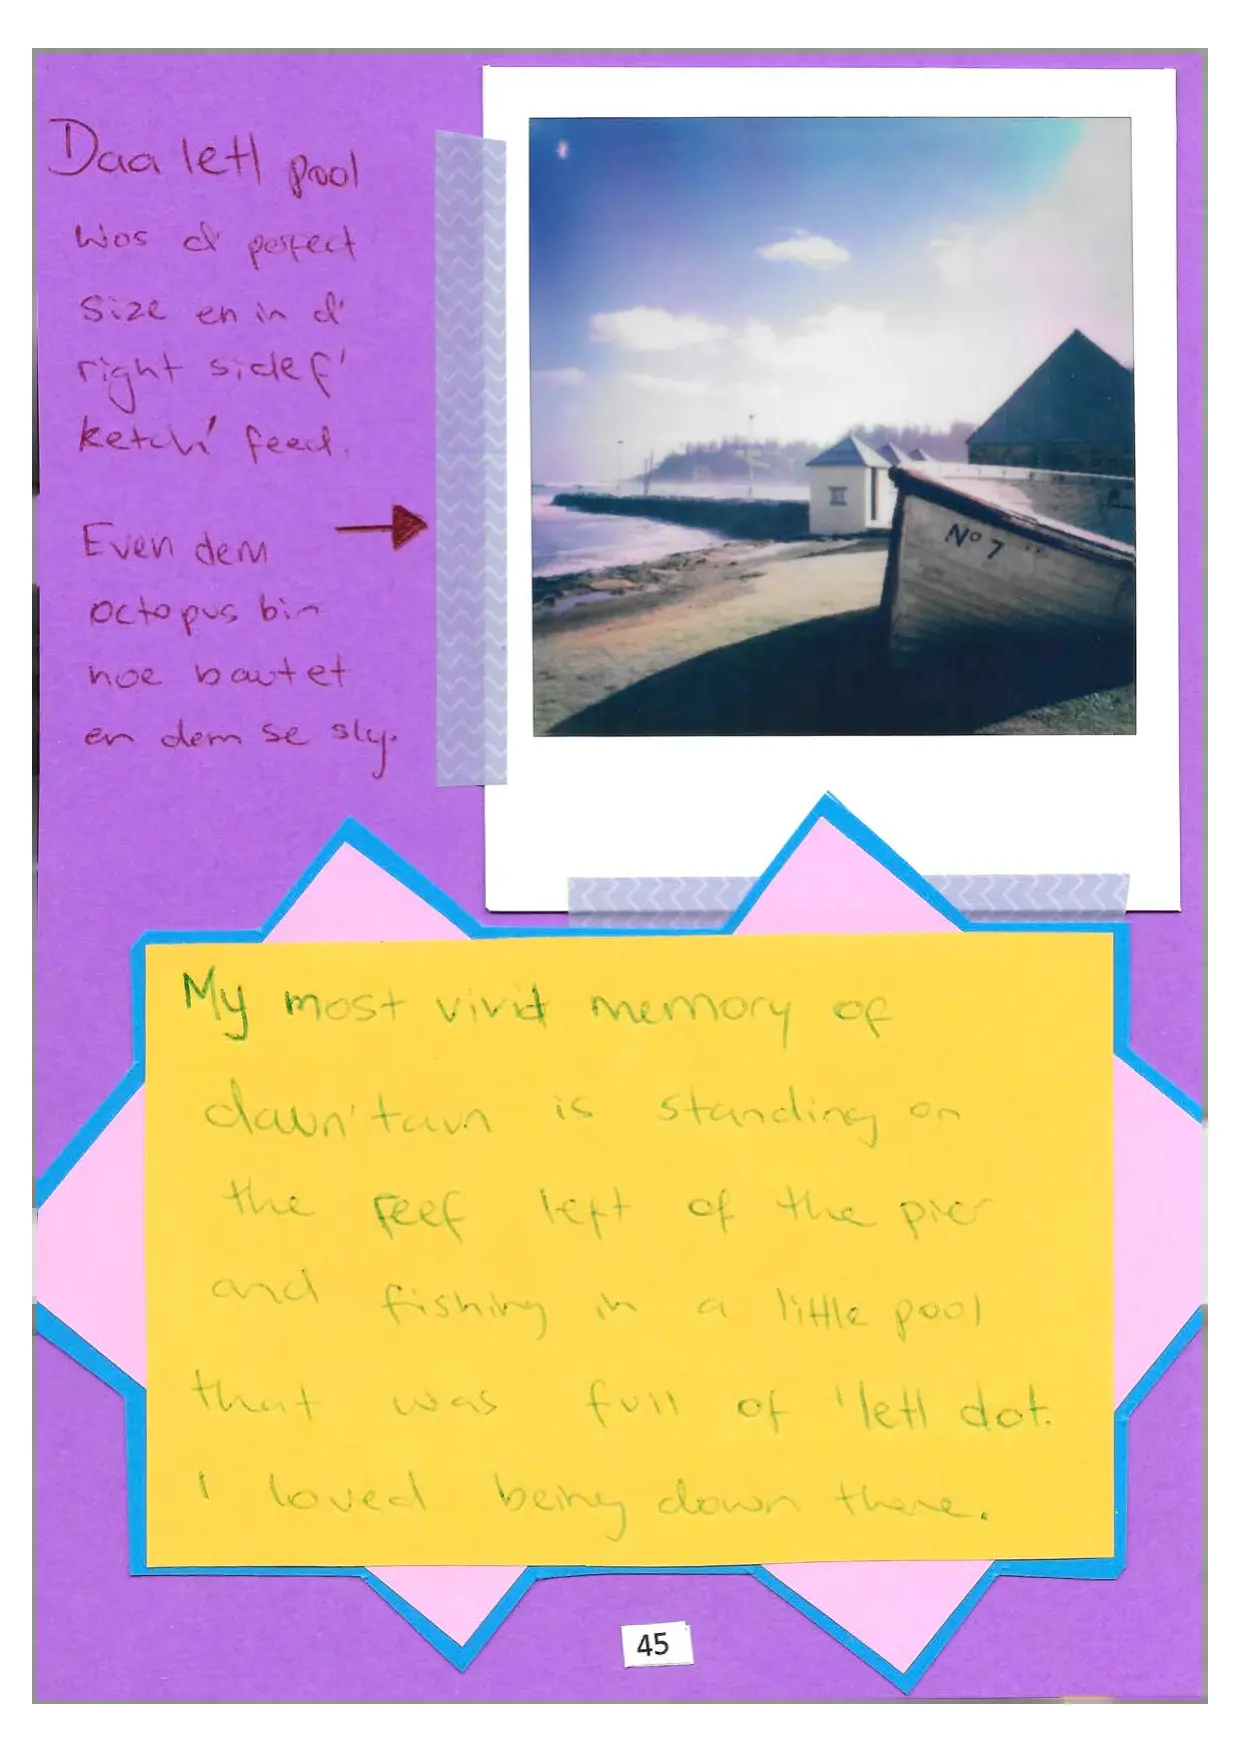 Daa letl pool
wos d' perfect
size en in d'
right side f'
ketch' feed.
Even dem
octopus bin
noe baut et
en dem se sly.
No 7
My most vivid memory of
daun'taun is standing on
the reef left of the pier
and fishing in a little pool
that was full of 'letl dot.
I loved being down there.
45